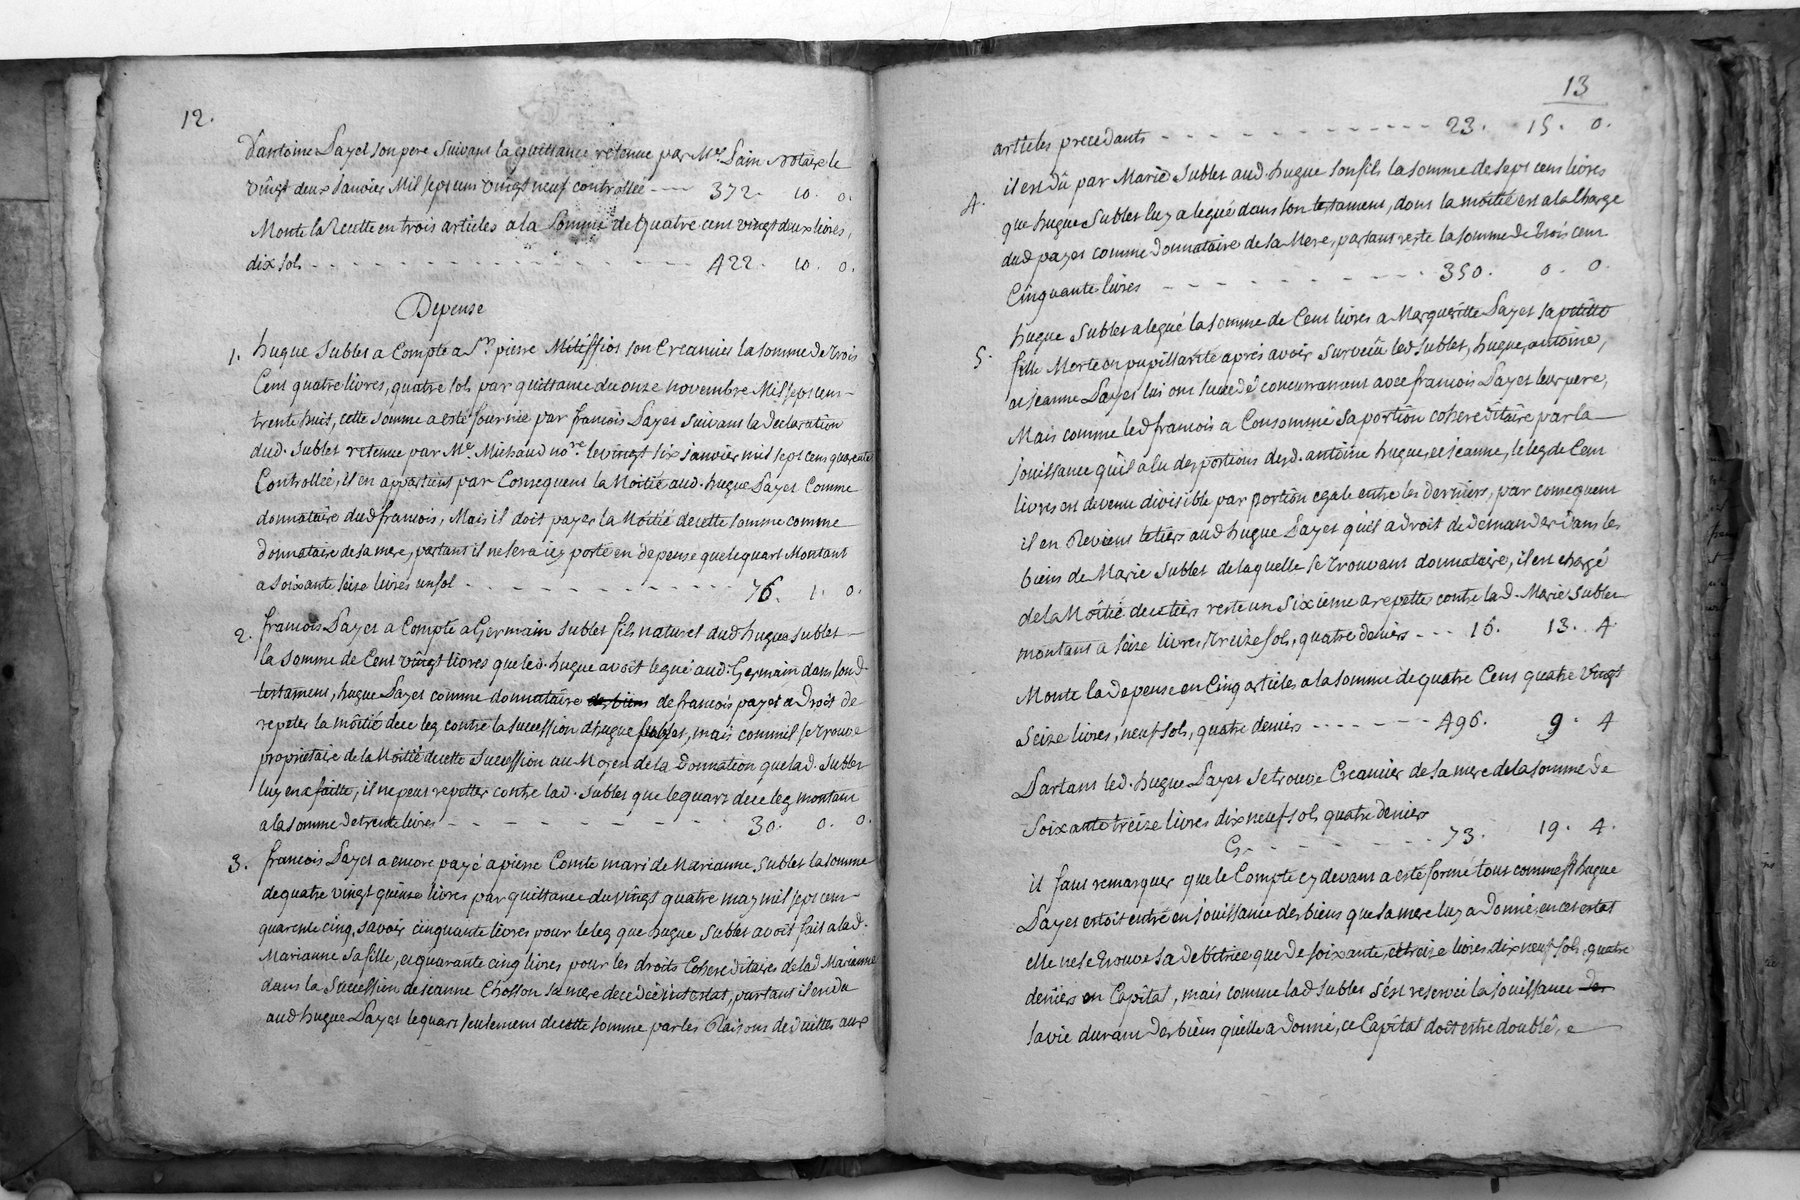 12.
d'antoine Payet son pere suivant la quittance retenue par Me. Pain notaire le
vingt deux Janvier Mil sept cent vingt neuf controllée ---- 372. 10. 0.
Monte la Recette en trois articles a la somme de quatre cent vingt deux livres,
dix sols - - - - - - - - - - - - 422. 10. 0.
Depense
1. hugue Sublet a Compté a Sr. pierre son Creancier la somme de trois
Cent quatre livres, quatre sols par quittance du onze novembre Mil sept cent
trente huit, cette somme a esté fournie par francois Payet suivant la declaration
dud. Sublet retenue par Me. Michaud nore. le vingt six janvier mil sept cens quarente
Controllée, il en appartient par Consequent la Moitié aud. hugue Payet Comme
donnataire dud francois, Mais il doit payer la Moitié de cette somme comme
donnataire de sa mere, partant il ne sera icy porté en depense que le quart Montant
a soixante seize livres un sol - - - - - - - - - - 76. 1. 0.
2. francois Payet a Compté a Germain Sublet fils naturel dud hugue Sublet
la somme de Cent vingt livres que led. hugue avoit legué aud. Germain dans sond
testament, hugue Payet comme donnataire des biens de francois payet a Droit de
repeter la moitié de ce leg contre la succession d'hugue Sublet, mais comm'il se trouve
proprietaire de la Moitié de cette Succession au Moyen de la Donnation que lad. Sublet
luy en a faitte, il ne peut repetter contre lad. Sublet que le quart de ce leg montant
a la somme de trente livres - - - - - - - - - 30. 0. 0.
3. francois Payet a encore payé a pierre Comte mari de Marianne Sublet la somme
de quatre vingt quinze livres par quittance du vingt quatre may mil sept cent
quarente cinq, savoir cinquante livres pour le leg que hugue Sublet avoit fait a lad.
Marianne sa fille, et quarante cinq livres pour les droits Cohereditaires de lad Marianne
dans la Succession de jeanne Chosson sa mere decedée intestat, partant il en du
aud hugue Payet le quart seulement de cette somme par les Raisons deduittes aux
13
articles precedants - - - - - - - - - - - 23. 15. 0.
4. il en dû par Marie Sublet aud. hugue son fils la somme de sept cent livres
que hugue Sublet luy a legué dans son testament, dont la moitié est a la Charge
dud payet comme Donnataire de sa Mere, partant reste la somme de Trois cent
Cinquante livres - - - - - - - - - 350. 0. 0.
5. hugue Sublet a legué la somme de Cent livres a Margueritte Payet sa petitte
fille Morte en pupillarité aprés avoir surveçû led Sublet, hugue, antoine,
et jeanne Payet lui ont succedé concurramment avec francois Payet leur pere,
Mais comme led francois a Consommé sa portion cohereditaire par la
jouissance qu'il a eu des portions desd. antoine hugue, et jeanne, le leg de Cent
livres est devenu divisible par portion egale entre les derniers, par consequent
il en Revient le tiers aud hugue Payet qu'il a droit de demander dans les
biens de Marie Sublet de laquelle se trouvant donnataire, il est chargé
de la Moitié de ce tiers reste un sixieme a repetter contre lad. Marie Sublet
montant a seize livres treize sols, quatre deniers - - - 16. 13. 4.
Monte la depense en Cinq articles a la somme de quatre Cent quatre vingt
seize livres, neuf sols, quatre deniers - - - - - - - 496. 9. 4
Partant led. hugue Payet se trouve Creancier de sa mere de la somme de
soixante treize livres dix neuf sols quatre deniers
Cy - - - - - - - - 73. 19. 4.
il faut remarquer que le Compte cy devant a esté formé tout comme si hugue
Payet estoit entré en jouissance des biens que sa mere luy a Donné, en cet estat
elle ne se trouve sa debitrice que de soixante, et treize livres dix neuf sols, quatre
deniers en Capital, mais comme lad Sublet s'est reservée la jouissance Des
sa vie durant des biens qu'elle a donné, ce Capital doit estre doublé, e